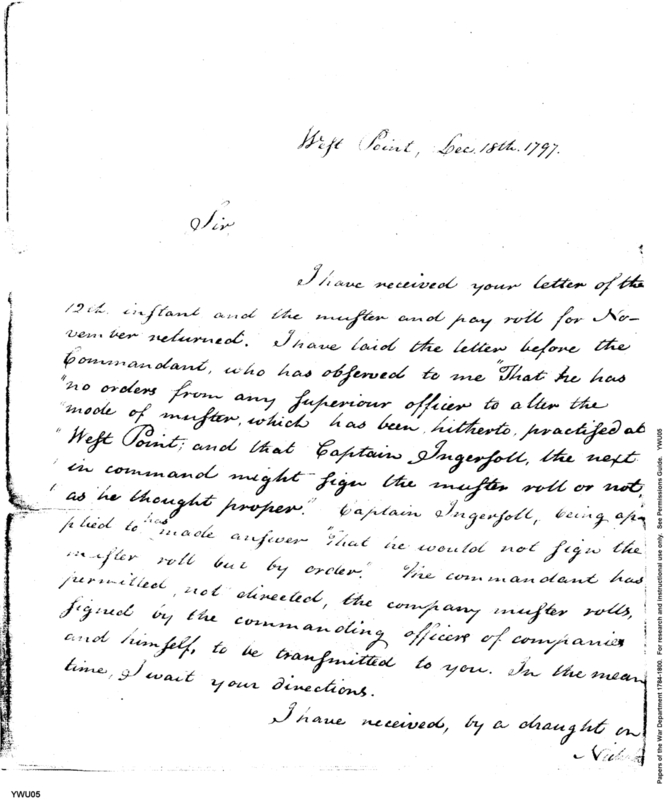 West Point, Dec. 18th. 1797.
Sir
I have received your letter of the
12th. instant and the muster and pay roll for No-
vember returned. I have laid the letter before the
Commandant, who has observed to me "That he has
"no orders from any superiour officer to alter the
"mode of muster, which has been, hitherto, practised at
"West Point; and that Captain Ingersoll, the next
" in command might sign the muster roll or not,
" as he thought proper." Captain Ingersoll, being ap-
plied to has made answer "That he would not sign the
muster roll but by order." The commandant has
permitted, not directed, the company muster rolls,
signed by the commanding officers of companies
and himself, to be transmitted to you. In the mean
time, I wait your directions.
I have received, by a draught on
YWU05
Papers of the War Department 1784-1800. For research and instructional use only. See Permissions Guide. YWU05